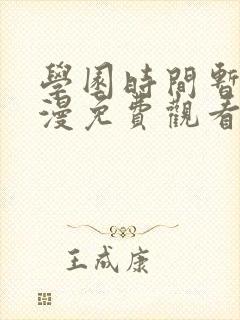 學園時間暫
漫免費觀看
王成康